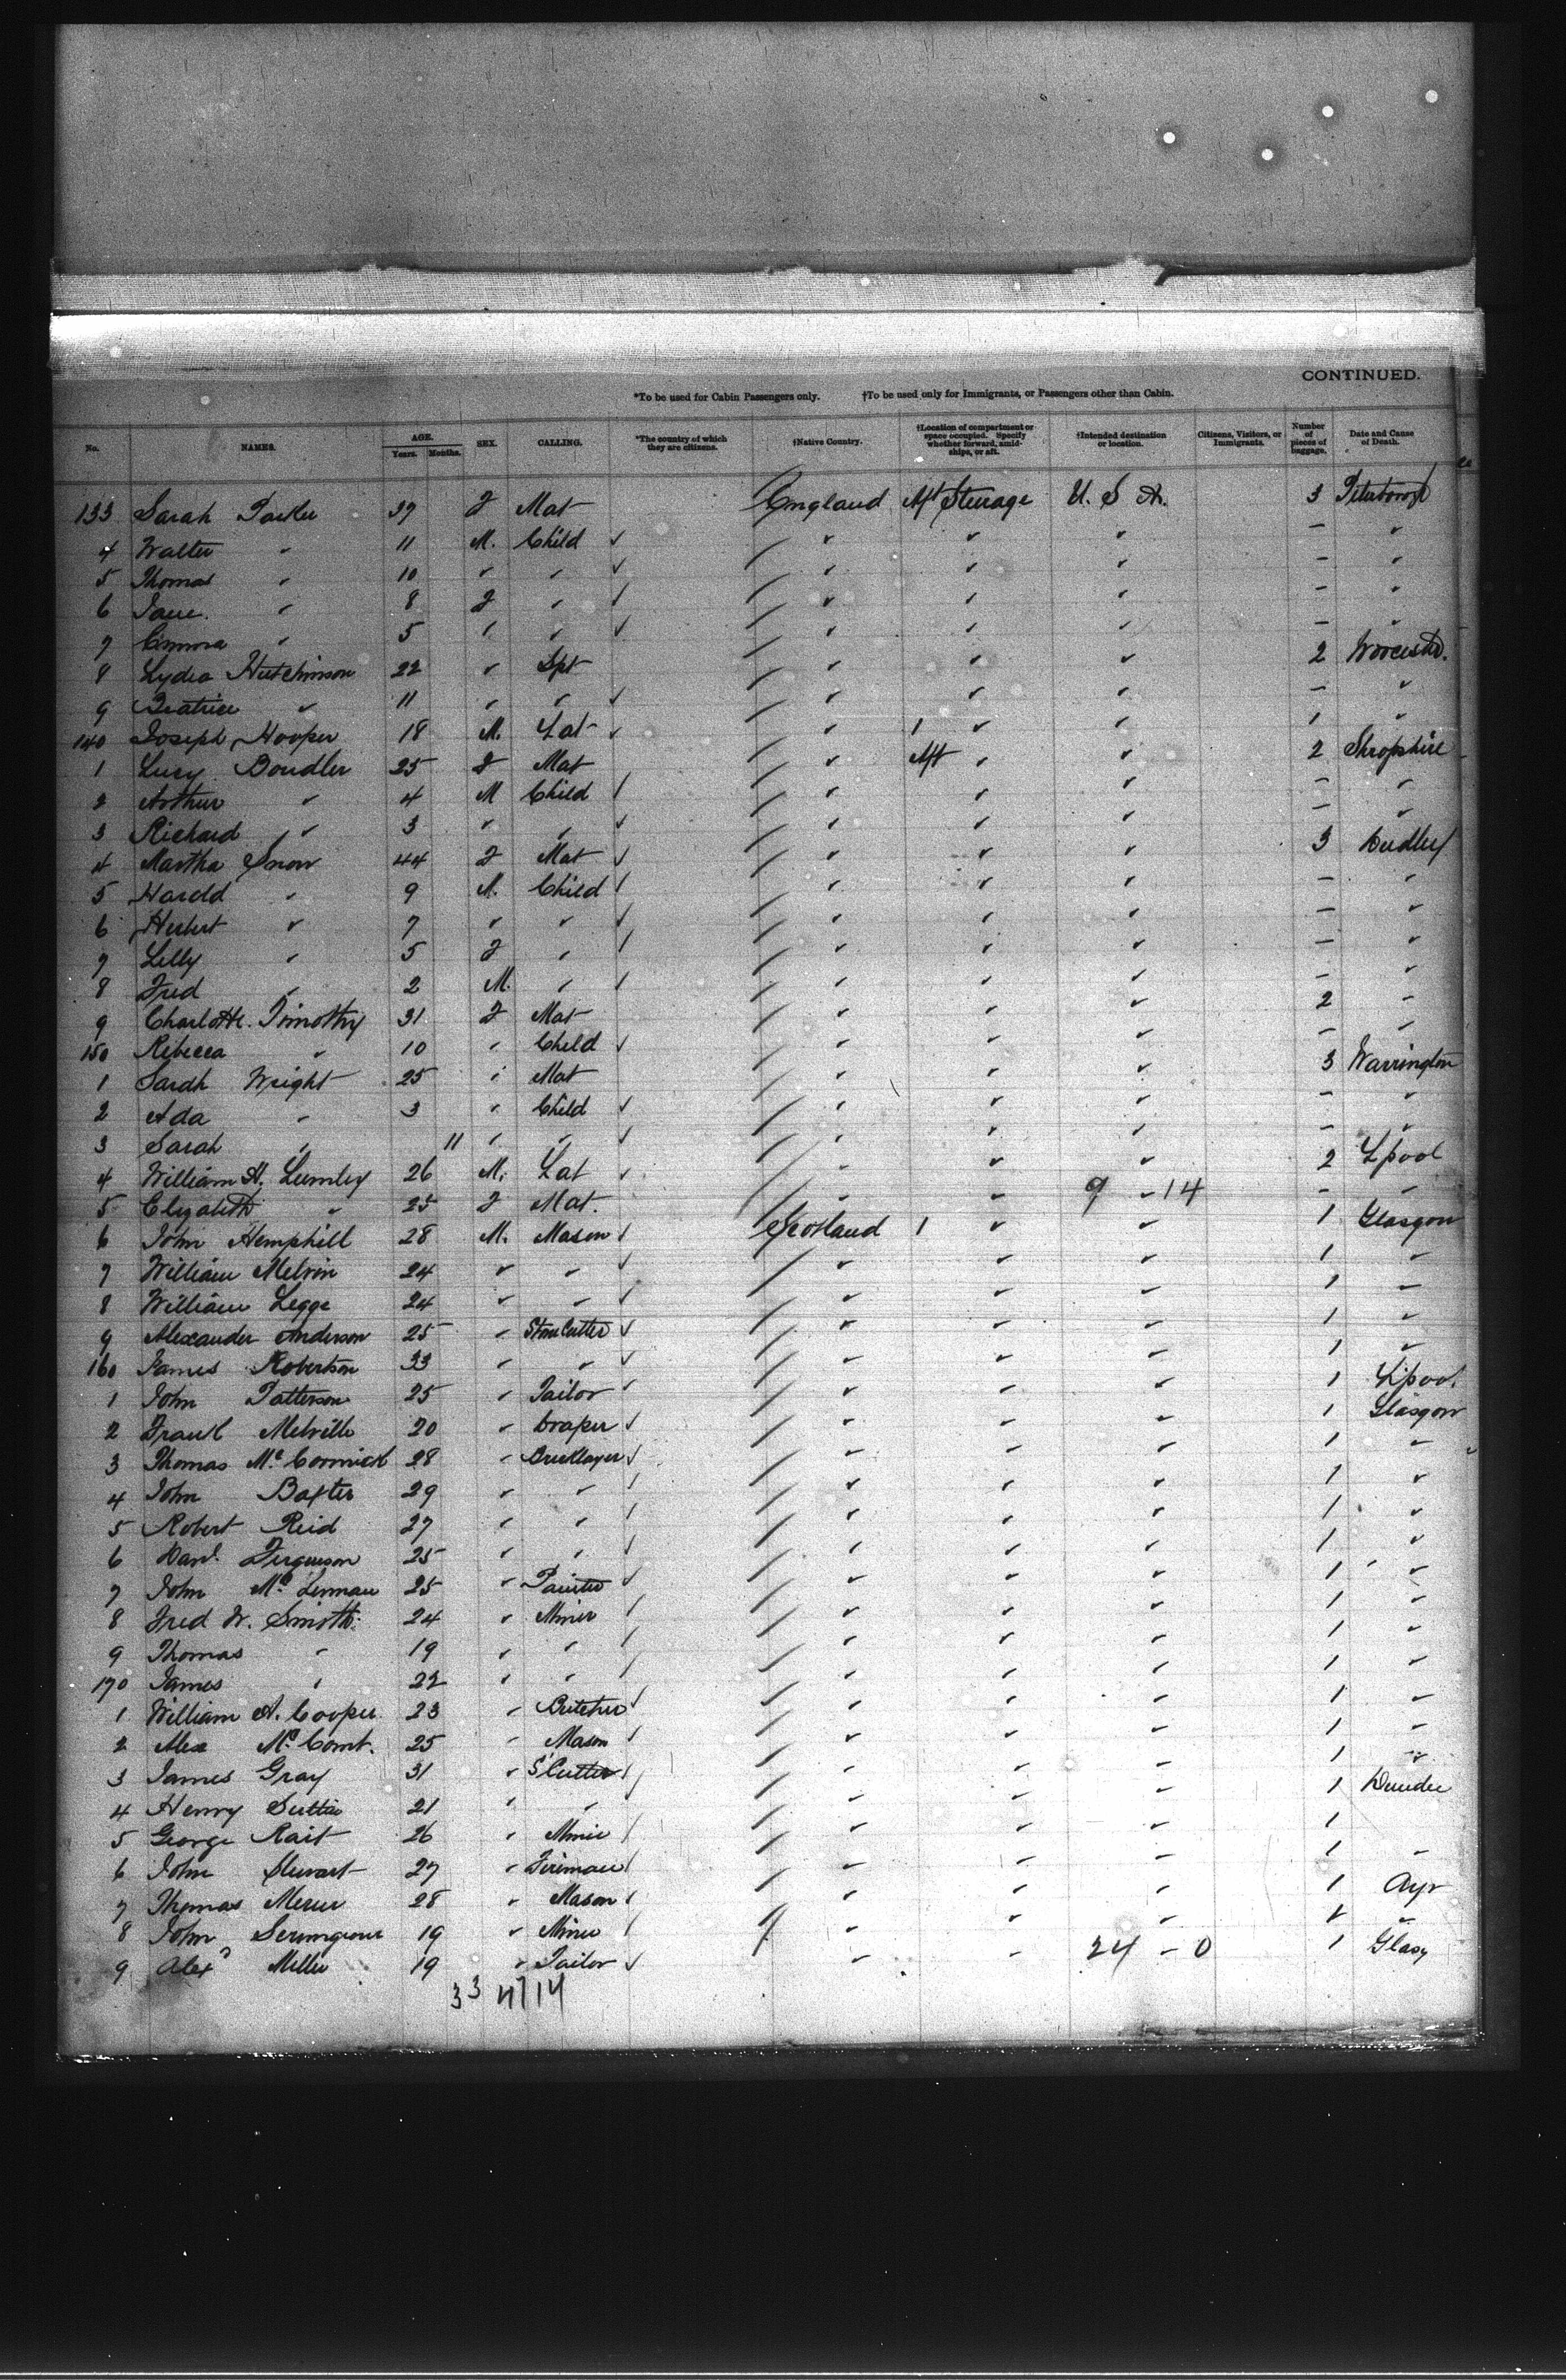 CONTINUED.
*To be used for Cabin Passengers only. †To be used only for Immigrants, or Passengers other than Cabin.
No. NAMES. AGE. Years. Months. SEX. CALLING. *The country of which they are citizens. †Native Country. †Location of compartment or space occupied. Specify whether forward, amidships, or aft. †Intended destination or location. Citizens, Visitors, or Immigrants. Number of pieces of baggage. Date and Cause of Death.
133 Sarah Parker 37 F Mat England Aft Steerage U. S A. 3 Peterboro
4 Walter " 11 M. Child ✓ " " " – "
5 Thomas " 10 " " ✓ " " " – "
6 Jane. " 8 F " ✓ " " " – "
7 Emma " 5 " " ✓ " " " – "
8 Lydia Hutchinson 22 " Spt " " " 2 Worcester.
9 Beatrice " 11 " " ✓ " " " – "
140 Joseph Hooper 18 M. Lab ✓ " 1 " " 1 "
1 Lucy Boudler 25 F Mat " Aft " " 2 Shropshire
2 Arthur " 4 M Child ✓ " " " – "
3 Richard " 3 " " ✓ " " " – "
4 Martha Snow 44 F Mat ✓ " " " 3 Dudley
5 Harold " 9 M. Child ✓ " " " – "
6 Herbert " 7 " " ✓ " " " – "
7 Lilly " 5 F " ✓ " " " – "
8 Fred " 2 M. " ✓ " " " – "
9 Charlotte. Timothy 31 F Mat " " " 2 "
150 Rebecca " 10 " Child ✓ " " " – "
1 Sarah Wright 25 " Mat " " " 3 Warrington
2 Ada " 3 " Child ✓ " " " – "
3 Sarah " 11 " " ✓ " " " – "
4 William H. Lumley 26 M. Lab ✓ " " " 2 Lpool
5 Elizabeth " 25 F Mat. " " 9 – 14 – "
6 John Hemphill 28 M. Mason ✓ Scotland 1 " " 1 Glasgow
7 William Melvin 24 " " ✓ " " " 1 "
8 William Legge 24 " " ✓ " " " 1 "
9 Alexander Anderson 25 " Stone Cutter ✓ " " " 1 "
160 James Robertson 33 " " ✓ " " " 1 "
1 John Patterson 25 " Tailor ✓ " " " 1 L'pool.
2 Frank Melville 20 " Draper ✓ " " " 1 Glasgow
3 Thomas McCormick 28 " Bricklayer ✓ " " " 1 "
4 John Baxter 29 " " ✓ " " " 1 "
5 Robert Reid 27 " " ✓ " " " 1 "
6 Danl. Ferguson 25 " " ✓ " " " 1 "
7 John McLennan 25 " Painter ✓ " " " 1 "
8 Fred W. Smith 24 " Miner ✓ " " " 1 "
9 Thomas " 19 " " ✓ " " " 1 "
170 James " 22 " " ✓ " " " 1 "
1 William A. Cooper 23 " Butcher ✓ " " " 1 "
2 Alex McComt. 25 " Mason ✓ " " " 1 "
3 James Gray 31 " S'Cutter ✓ " " " 1 "
4 Henry Suttie 21 " " ✓ " " " 1 Dundee
5 George Rait 26 " Miner ✓ " " " 1
6 John Stewart 27 " Fireman ✓ " " " 1 "
7 Thomas Mercer 28 " Mason ✓ " " " 1 Ayr
8 John Scrimgeour 19 " Miner ✓ " " " 1 "
9 Alexr Miller 19 " Tailor ✓ " " 24 – 0 1 Glasg
33 4714